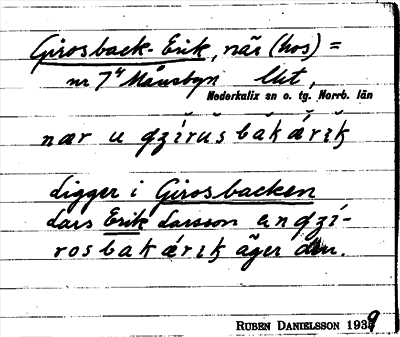 Girosback-Erik, när (hos) =
nr 7⁴ Månsbyn Utt,
Nederkalix sn o. tg. Norrb. län
nær u gzírŭsbăkǽrĭk
ligger i Girosbacken
Lars Erik Larsson en gzí-
rosbakǽrɩk äger den.
RUBEN DANIELSSON 1939